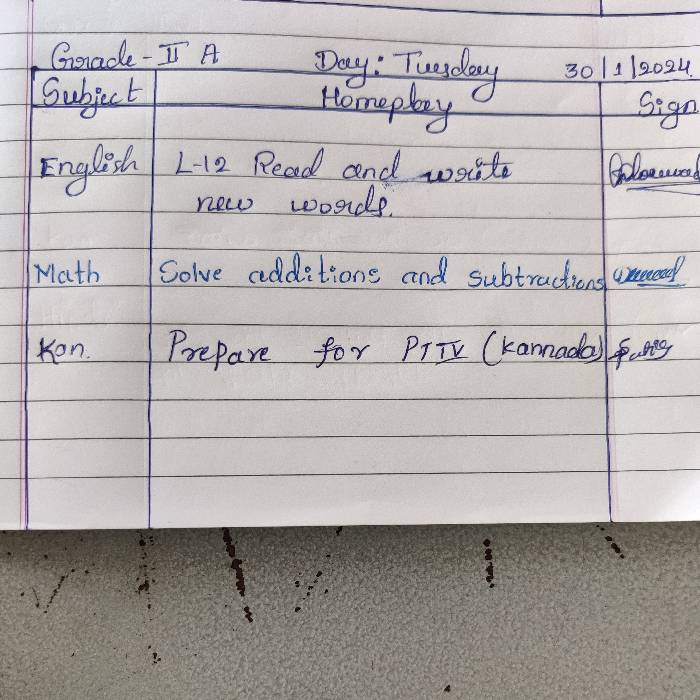 Grade - II A Day: Tuesday 30/1/2024
Subject Homeplay Sign
English L-12 Read and write
new words.
Math Solve additions and subtractions
Kan. Prepare for PT IV (Kannada)